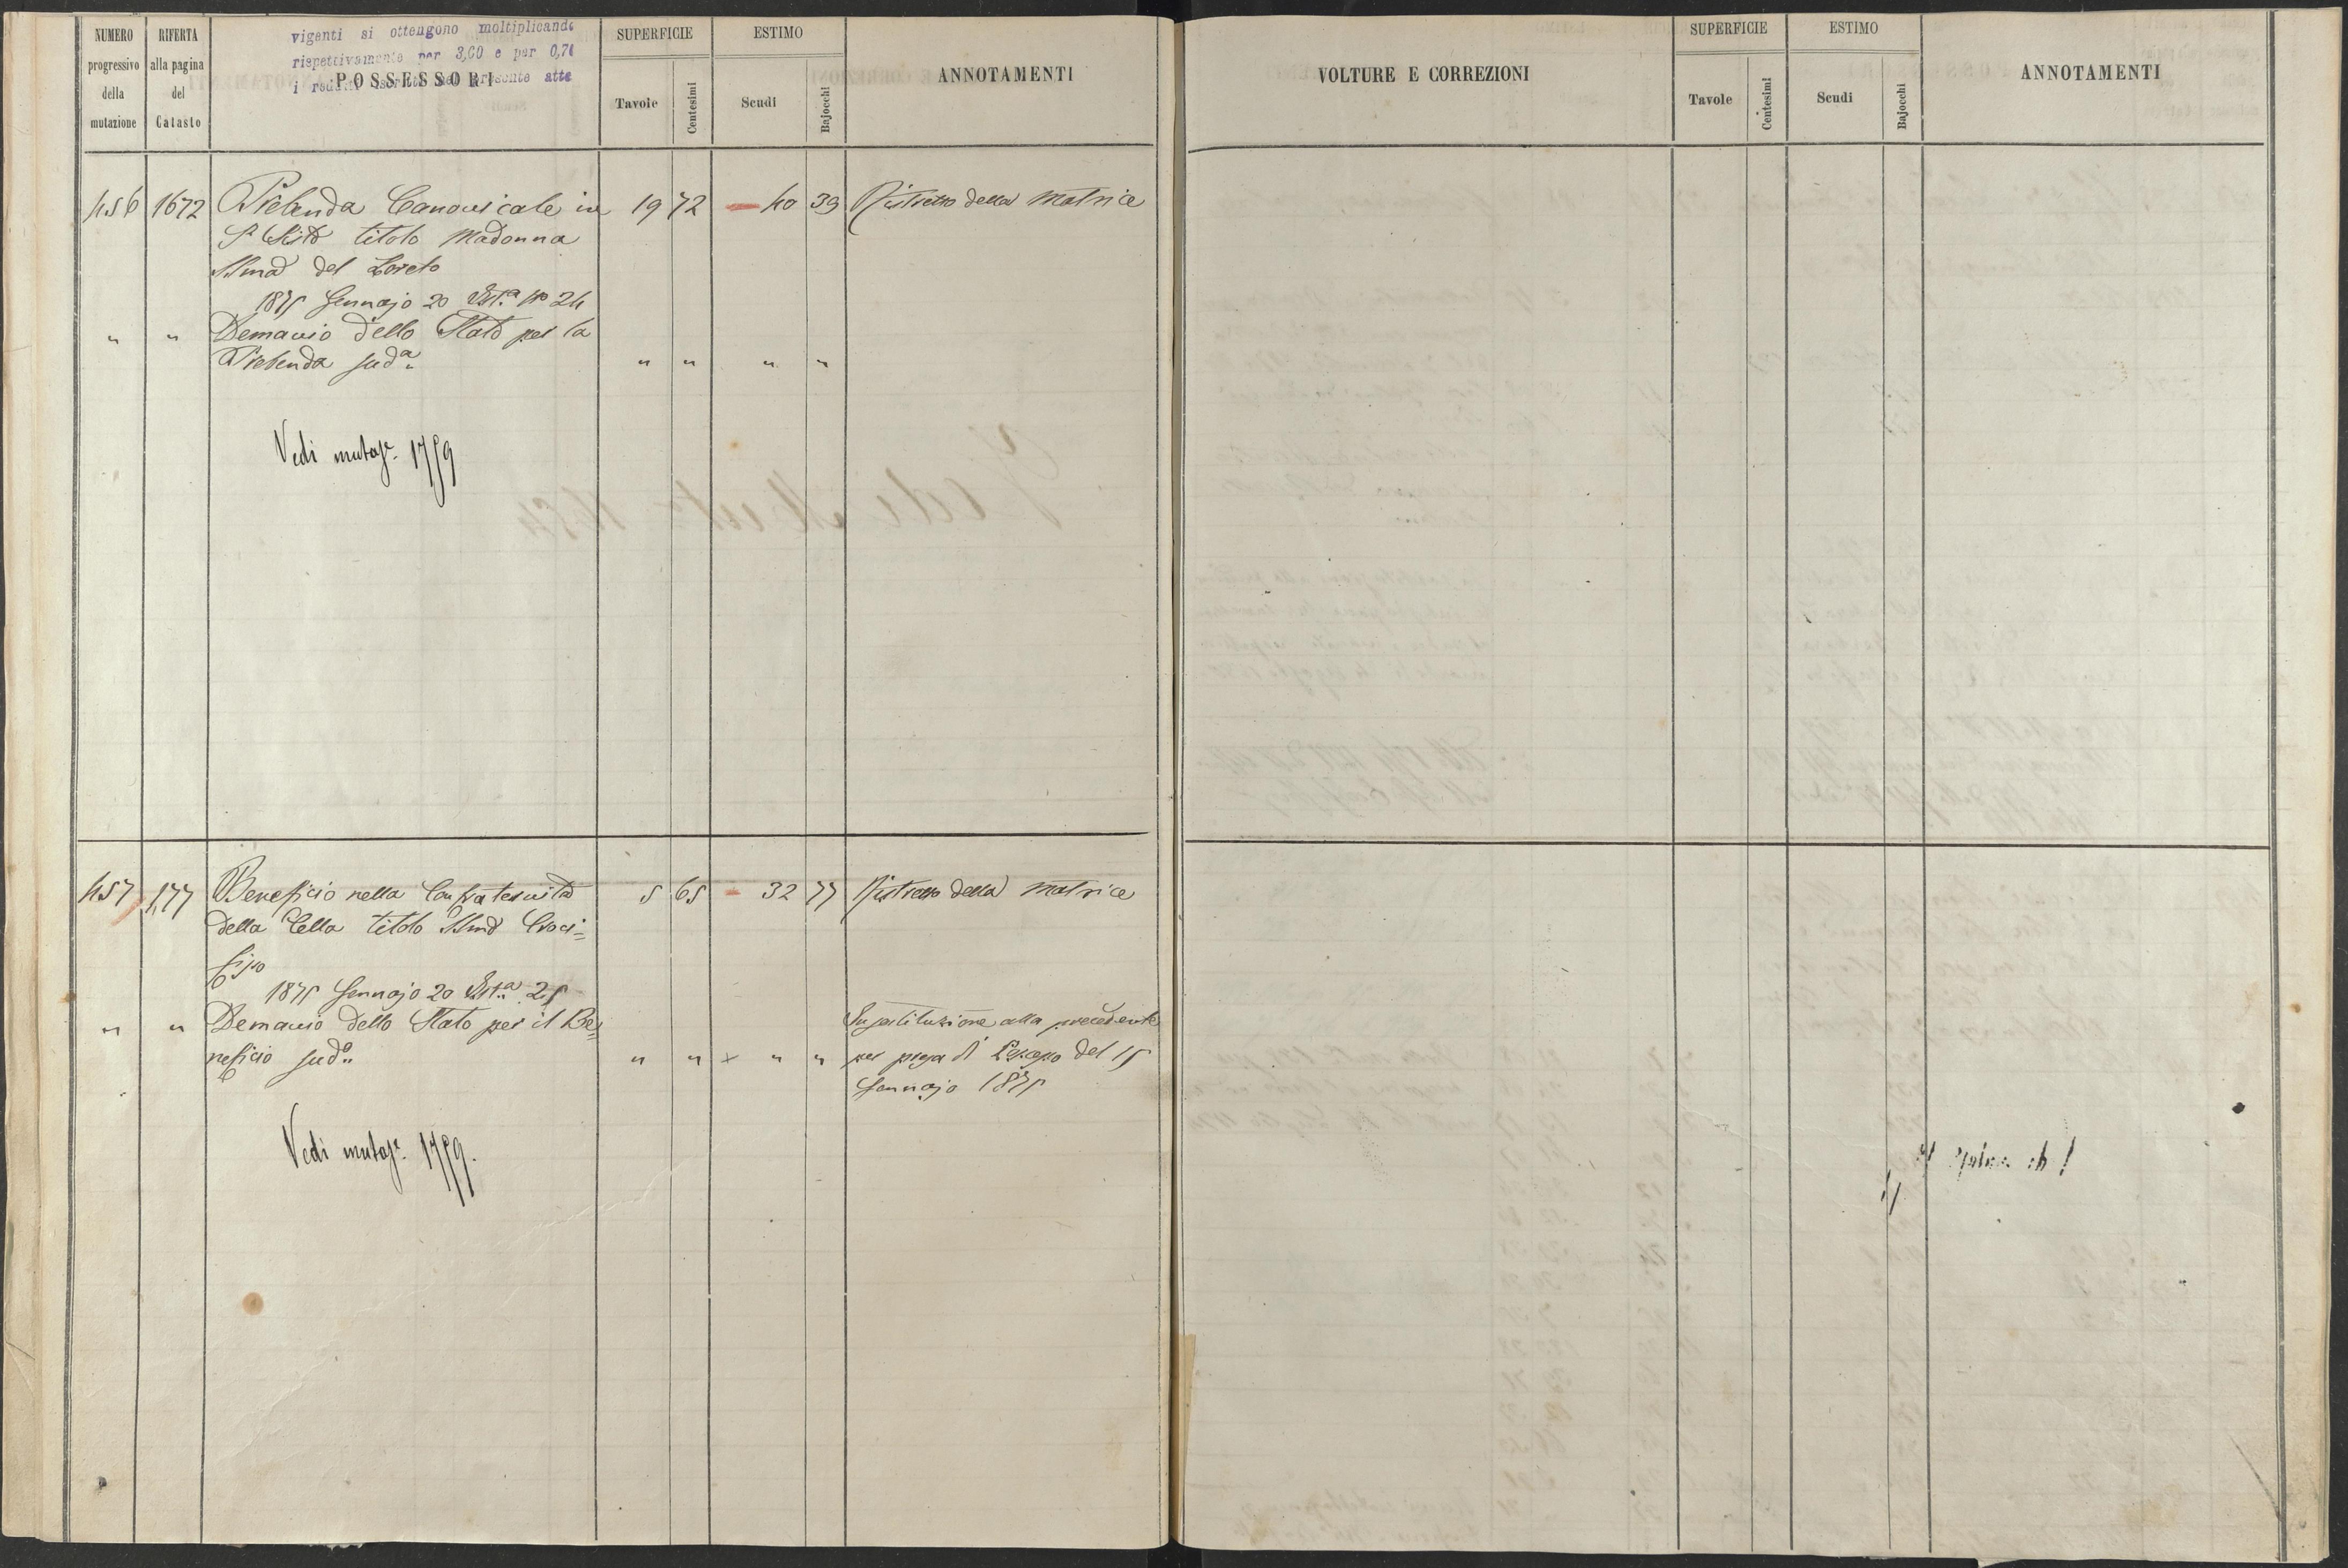 NUMERO
progressivo
della
mutazione
RIFERTA
alla pagina
del
Catasto
viganti si ottengono moltiplicando
rispettivamente per 3,60 e per 0,70
i redditi iscritti nel presente atto
POSSESSORI
SUPERFICIE
Tavole
Centesimi
ESTIMO
Scudi
Bajocchi
ANNOTAMENTI
456 1672 Prebenda Canonicale in 19 72 — 40 39 Ristretto della Matrice
S. Sisto titolo Madonna
SSma del Loreto
1875 Gennajo 20 Ist.a No 24
" " Demanio dello Stato per la
Prebenda sud.a " " " "
Vedi mutaz.e 1759
457 177 Beneficio nella Confraternita 5 65 — 32 77 Ristretto della Matrice
della Cella titolo SSmo Croci=
fisso
1875 Gennajo 20 Ist.a 25
" " Demanio dello Stato per il Be= In sostituzione alla precedente
neficio sud.o " " x " " per presa di Possesso del 15
Gennajo 1875
Vedi mutaz.e 1759.
VOLTURE E CORREZIONI
SUPERFICIE
Tavole
Centesimi
ESTIMO
Scudi
Bajocchi
ANNOTAMENTI